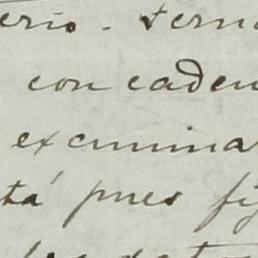 erio. Fern
con caden
examina
tá pues fi